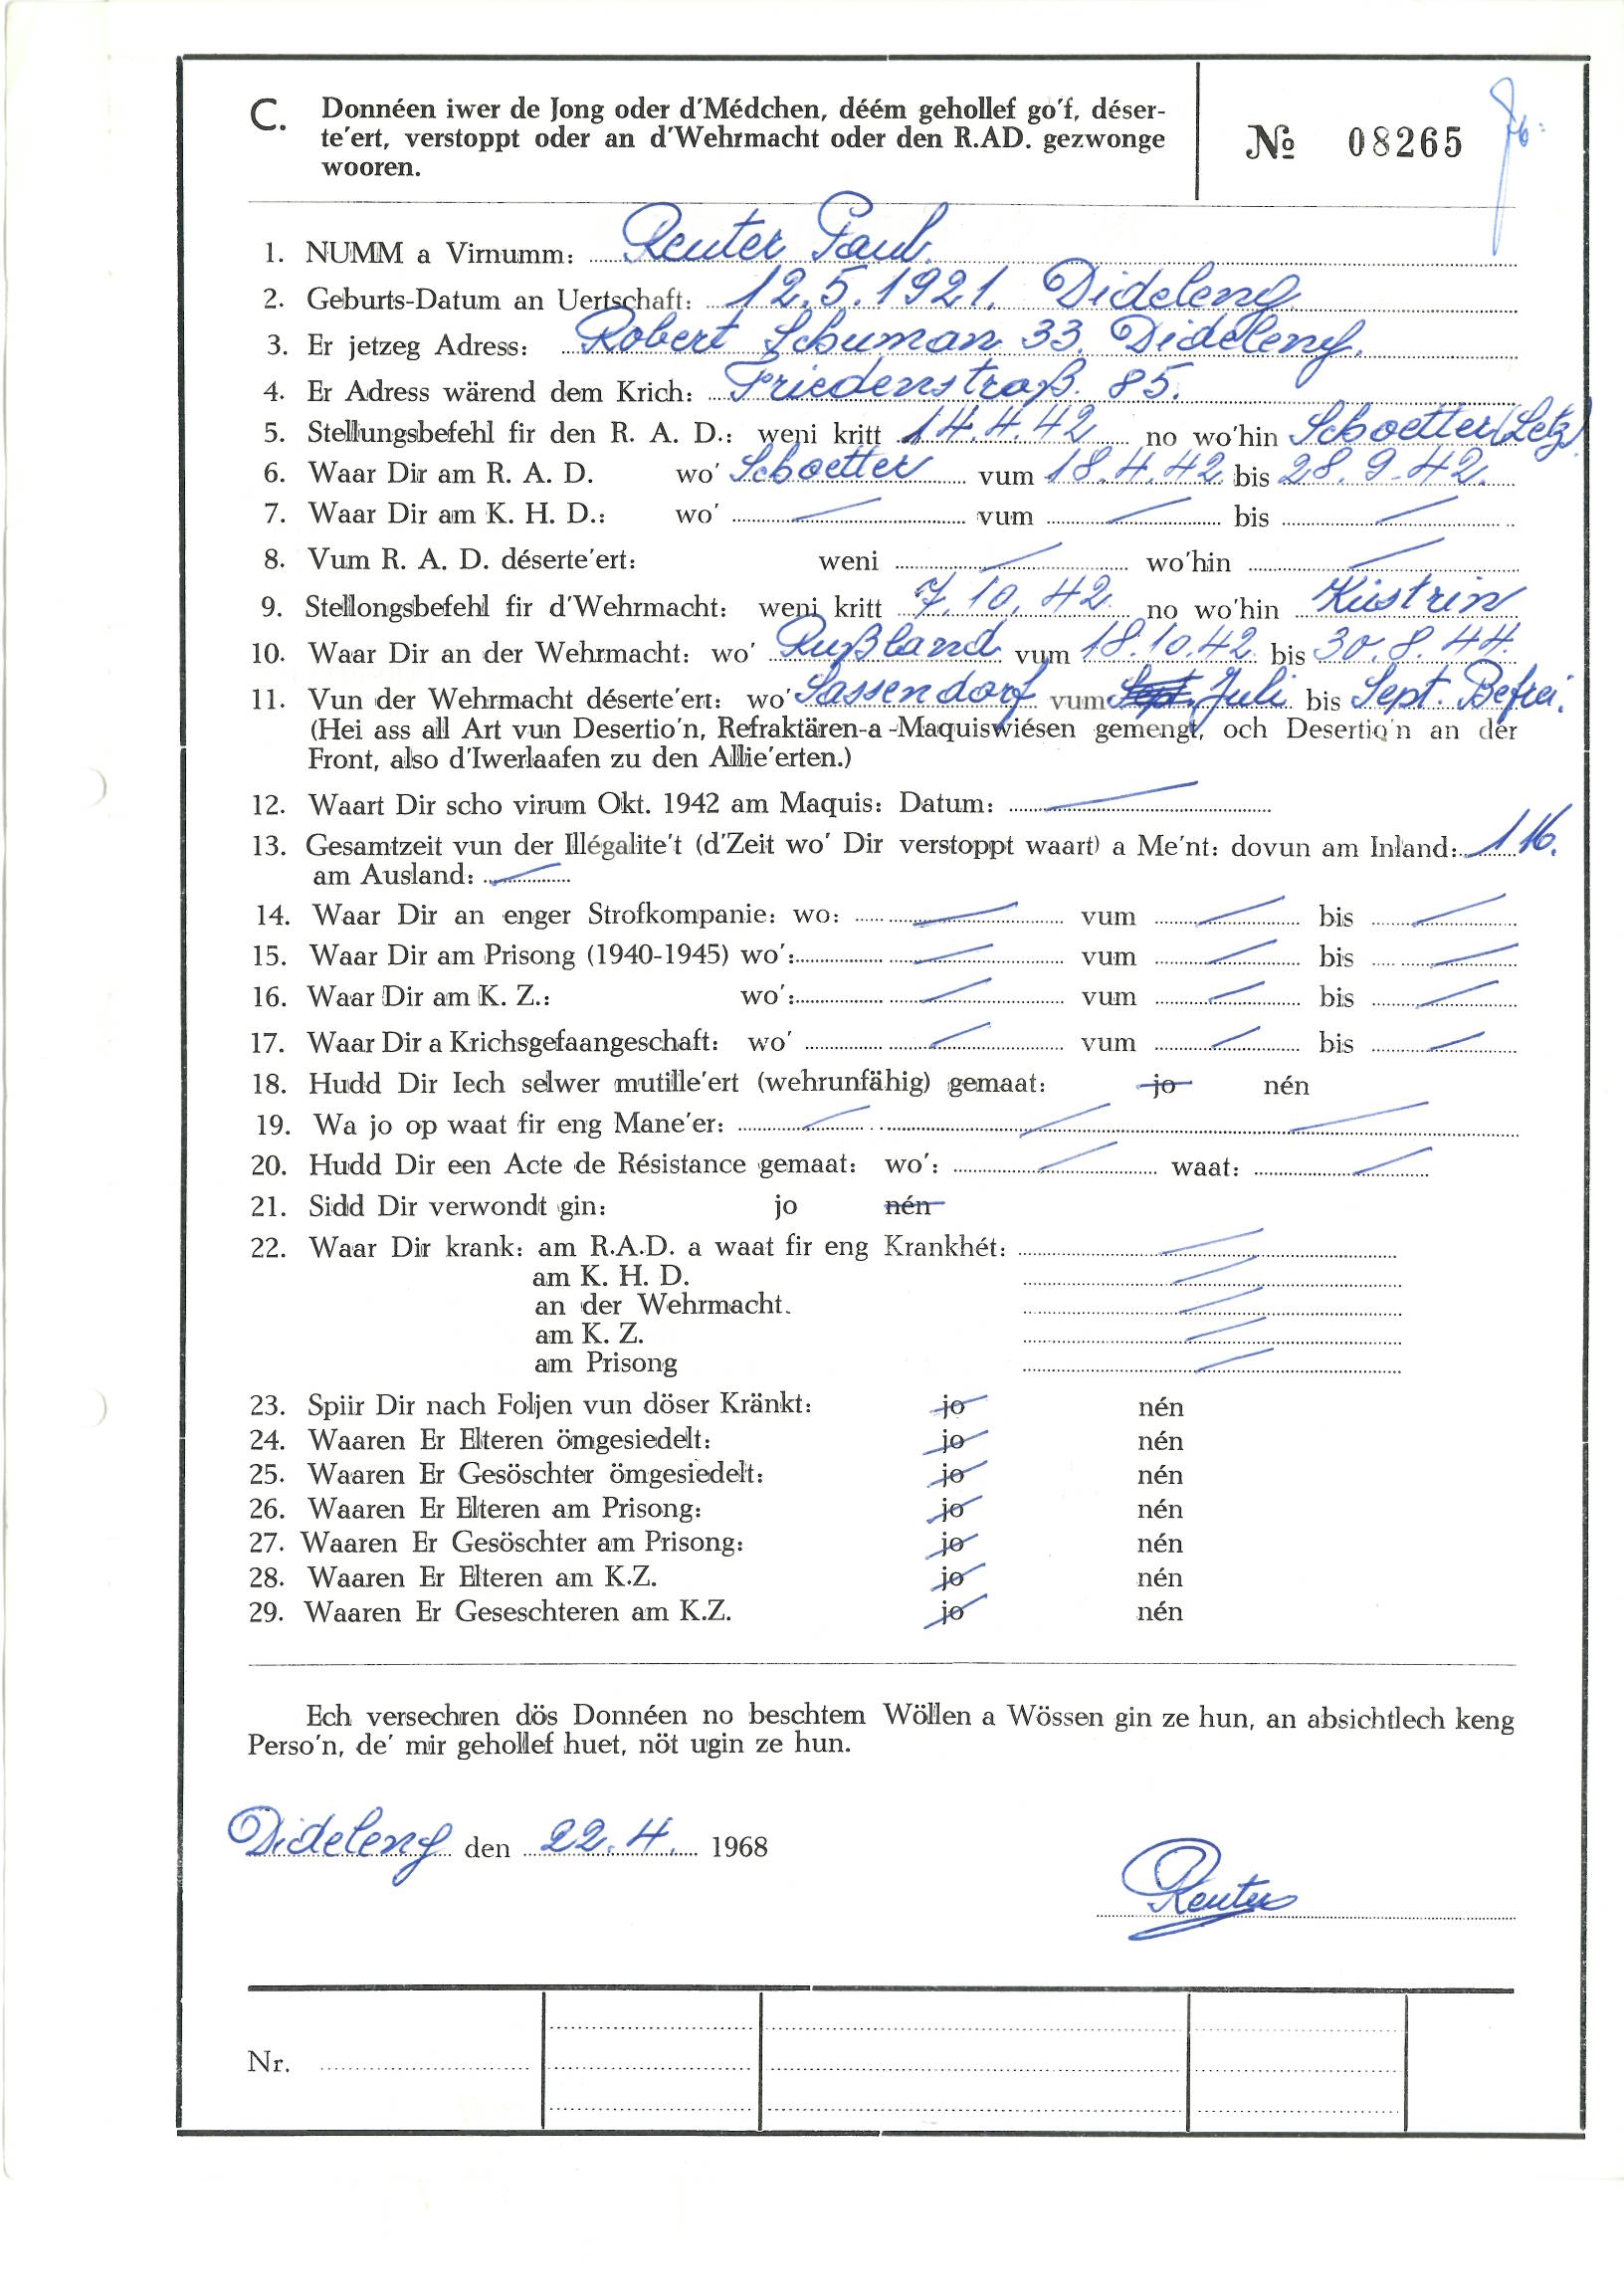 C. Donnéen iwer de Jong oder d'Médchen, déém gehollef go'f, déser-
te'ert, verstoppt oder an d'Wehrmacht oder den R.AD. gezwonge
wooren.
№ 08265
1. NUMM a Virnumm: Reuter Paul.
2. Geburts-Datum an Uertschaft: 12.5.1921. Dideleng.
3. Er jetzeg Adress: Robert Schuman 33. Dideleng.
4. Er Adress wärend dem Krich: Friedenstraß. 85.
5. Stellungsbefehl fir den R. A. D.: weni kritt 14.4.42 no wo'hin Schoetter (Letz)
6. Waar Dir am R. A. D. wo' Schoetter vum 18.4.42 bis 28.9.42.
7. Waar Dir am K. H. D.: wo' vum bis
8. Vum R. A. D. déserte'ert: weni wo'hin
9. Stellongsbefehl fir d'Wehrmacht: weni kritt 7.10.42 no wo'hin Küstrin
10. Waar Dir an der Wehrmacht: wo' Rußland vum 18.10.42 bis 30.8.44.
11. Vun der Wehrmacht déserte'ert: wo' Sassendorf vum Sept. Juli bis Sept. Befrei.
(Hei ass all Art vun Desertio'n, Refraktären-a-Maquiswiésen gemengt, och Desertio'n an der
Front, also d'Iwerlaafen zu den Allie'erten.)
12. Waart Dir scho virum Okt. 1942 am Maquis: Datum:
13. Gesamtzeit vun der Illégalite't (d'Zeit wo' Dir verstoppt waart) a Me'nt: dovun am Inland:
am Ausland:
14. Waar Dir an enger Strofkompanie: wo: vum bis
15. Waar Dir am Prisong (1940-1945) wo': vum bis
16. Waar Dir am K. Z.: wo': vum bis
17. Waar Dir a Krichsgefaangeschaft: wo' vum bis
18. Hudd Dir Iech selwer mutille'ert (wehrunfähig) gemaat: jo nén
19. Wa jo op waat fir eng Mane'er:
20. Hudd Dir een Acte de Résistance gemaat: wo': waat:
21. Sidd Dir verwondt gin: jo nén
22. Waar Dir krank: am R.A.D. a waat fir eng Krankhét:
am K. H. D.
an der Wehrmacht.
am K. Z.
am Prisong
23. Spiir Dir nach Foljen vun döser Kränkt: jo nén
24. Waaren Er Elteren ömgesiedelt: jo nén
25. Waaren Er Gesöschter ömgesiedelt: jo nén
26. Waaren Er Elteren am Prisong: jo nén
27. Waaren Er Gesöschter am Prisong: jo nén
28. Waaren Er Elteren am K.Z. jo nén
29. Waaren Er Geseschteren am K.Z. jo nén
Ech versechren dös Donnéen no beschtem Wöllen a Wössen gin ze hun, an absichtlech keng
Perso'n, de' mir gehollef huet, nöt ugin ze hun.
Dideleng den 22.4. 1968
Reuter
Nr.